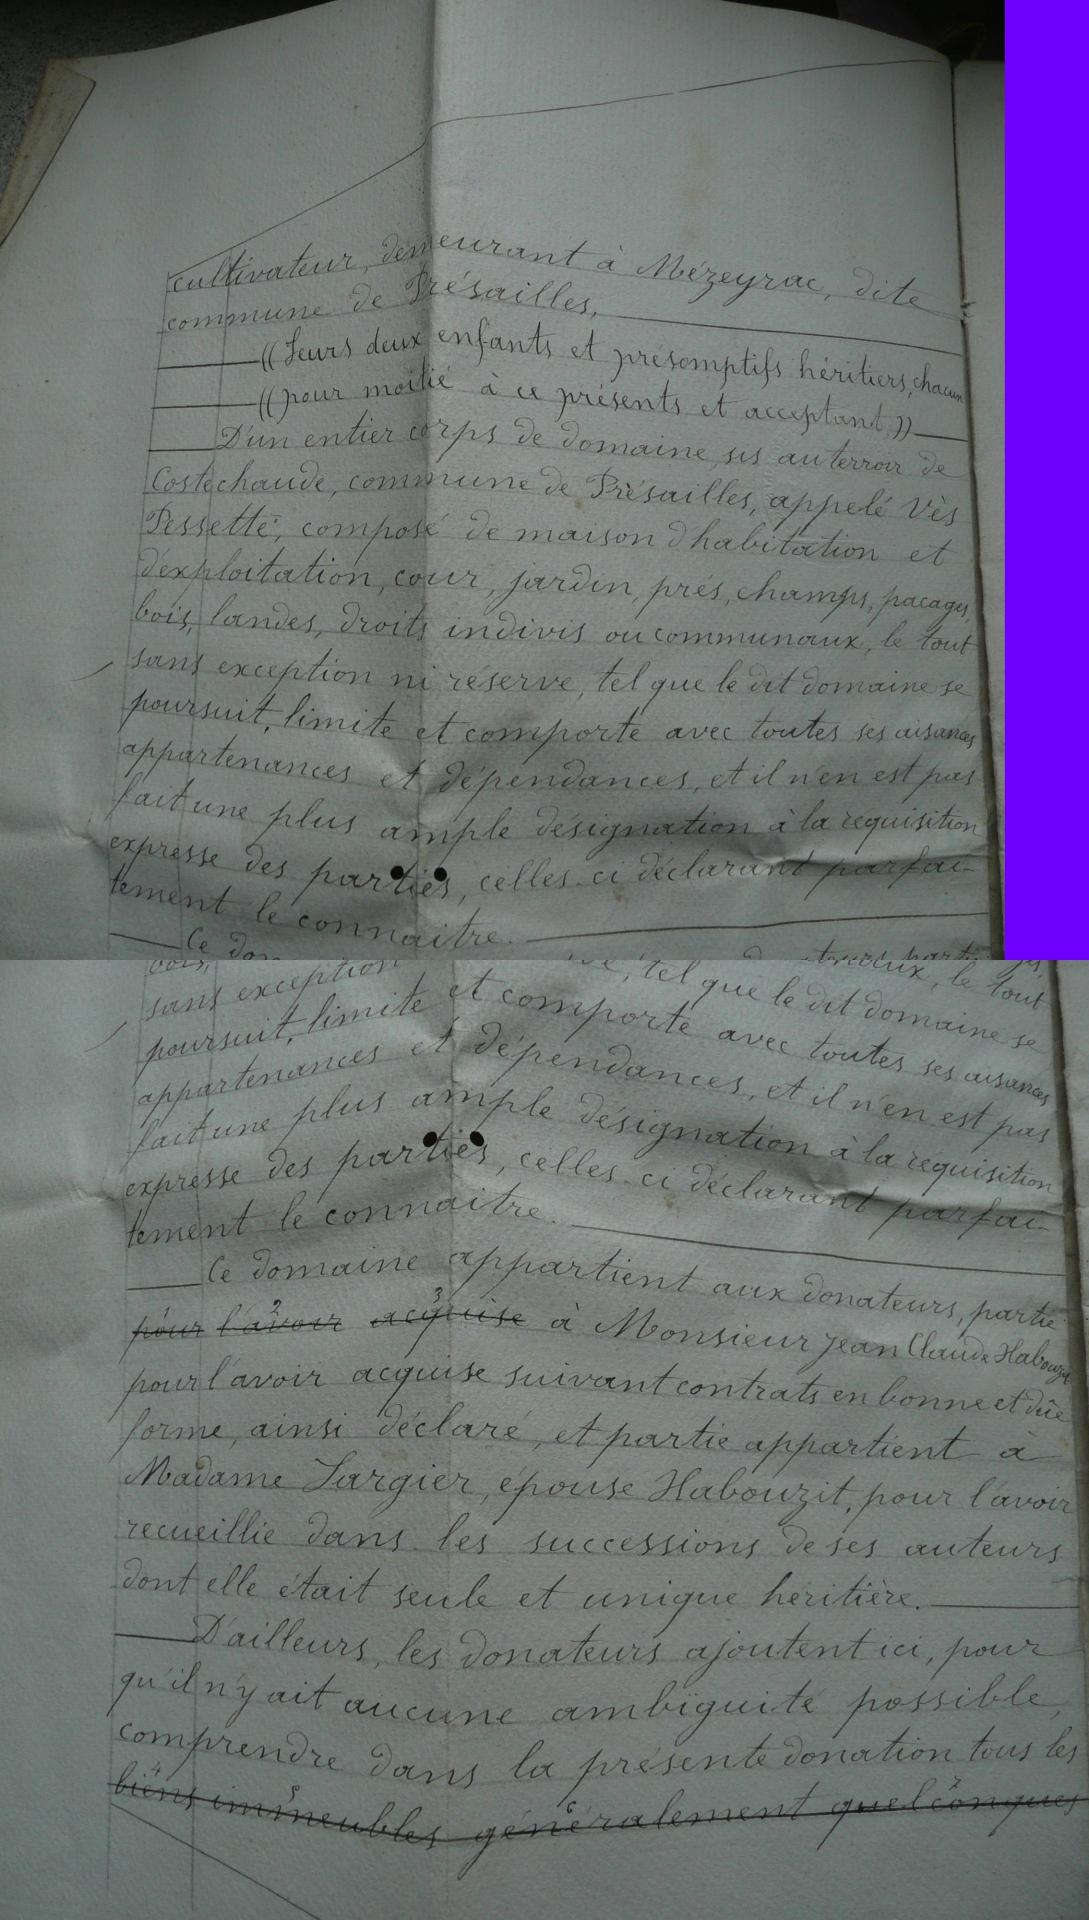 cultivateur, demeurant à Mézeyrac, dite
commune de Présailles,
((Leurs deux enfants et présomptifs héritiers, chacun
((pour moitié à ce présents et acceptant,))
D'un entier corps de domaine, sis au terroir de
Costechaude, commune de Présailles, appelé Vès
Pessette, composé de maison d'habitation et
d'exploitation, cour, jardin, prés, champs, pacages,
bois, landes, droits indivis ou communaux, le tout
sans exception ni réserve, tel que le dit domaine se
poursuit, limite et comporte avec toutes ses aisances
appartenances et dépendances, et il n'en est pas
fait une plus ample désignation à la réquisition
expresse des parties, celles-ci déclarant parfai-
tement le connaitre.
Ce dom
bois, le tout
sans exception tel que le dit domaine se
poursuit, limite et comporte avec toutes ses aisances
appartenances et dépendances, et il n'en est pas
fait une plus ample désignation à la requisition
expresse des parties, celles-ci déclarant parfai-
tement le connaitre.
Ce domaine appartient aux donateurs, partie
pour l'avoir acquise à Monsieur Jean Claude Habouzit
pour l'avoir acquise suivant contrats en bonne et dûe
forme, ainsi déclaré, et partie appartient à
Madame Largier, épouse Habouzit, pour l'avoir
recueillie dans les successions de ses auteurs
dont elle était seule et unique héritière.
D'ailleurs, les donateurs ajoutent ici, pour
qu'il n'y ait aucune ambiguité possible,
comprendre dans la présente donation tous les
biens immeubles généralement quelconques